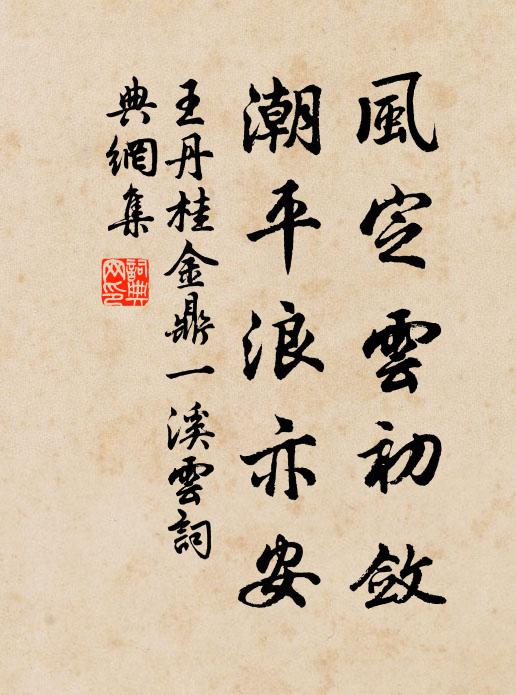 風定雲初斂
潮平浪亦安
王丹桂金鼎一溪雲詞
典網集
詞典
网印